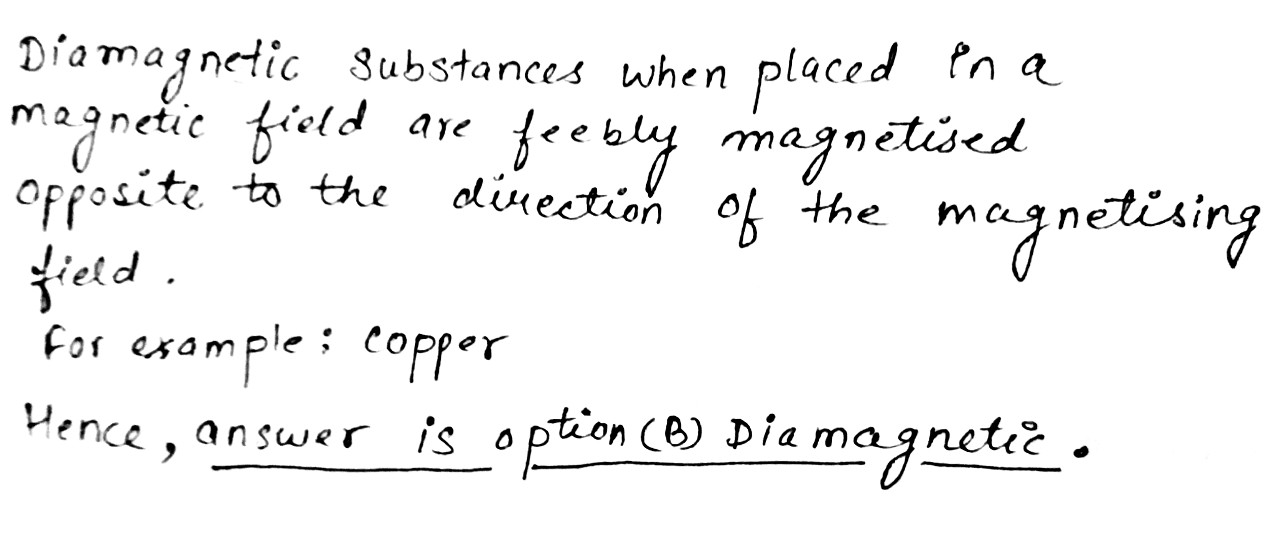 Diamagnetic substances when placed in a
magnetic field are feebly magnetised
opposite to the direction of the magnetising
field .
For example : Copper
Hence, answer is option (B) Diamagnetic .